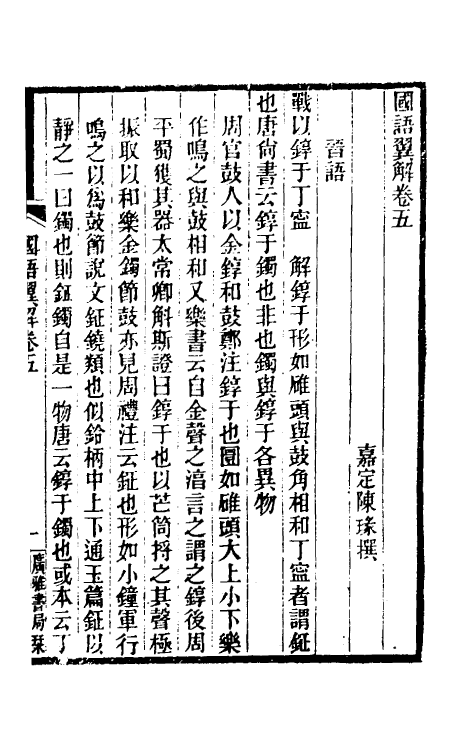 國語翼解卷五
嘉定陳瑑撰
晉語
戰以錞于丁寍　解錞于形如碓頭與鼓角相和丁寍者謂鉦
也唐尙書云錞于鐲也非也鐲與錞于各異物
周官鼓人以金錞和鼓鄭注錞于也圜如碓頭大上小下樂
作鳴之與鼓相和又樂書云自金聲之涫言之謂之錞後周
平蜀獲其器太常卿斛斯證曰錞于也以芒筒捋之其聲極
振取以和樂金鐲節鼓亦見周禮注云鉦也形如小鐘軍行
鳴之以爲鼓節說文鉦鐃類也似鈴柄中上下通玉篇鉦以
靜之一曰鐲也則鉦鐲自是一物唐云錞于鐲也或本云丁
國語翼解卷五
一
廣雅書局栞